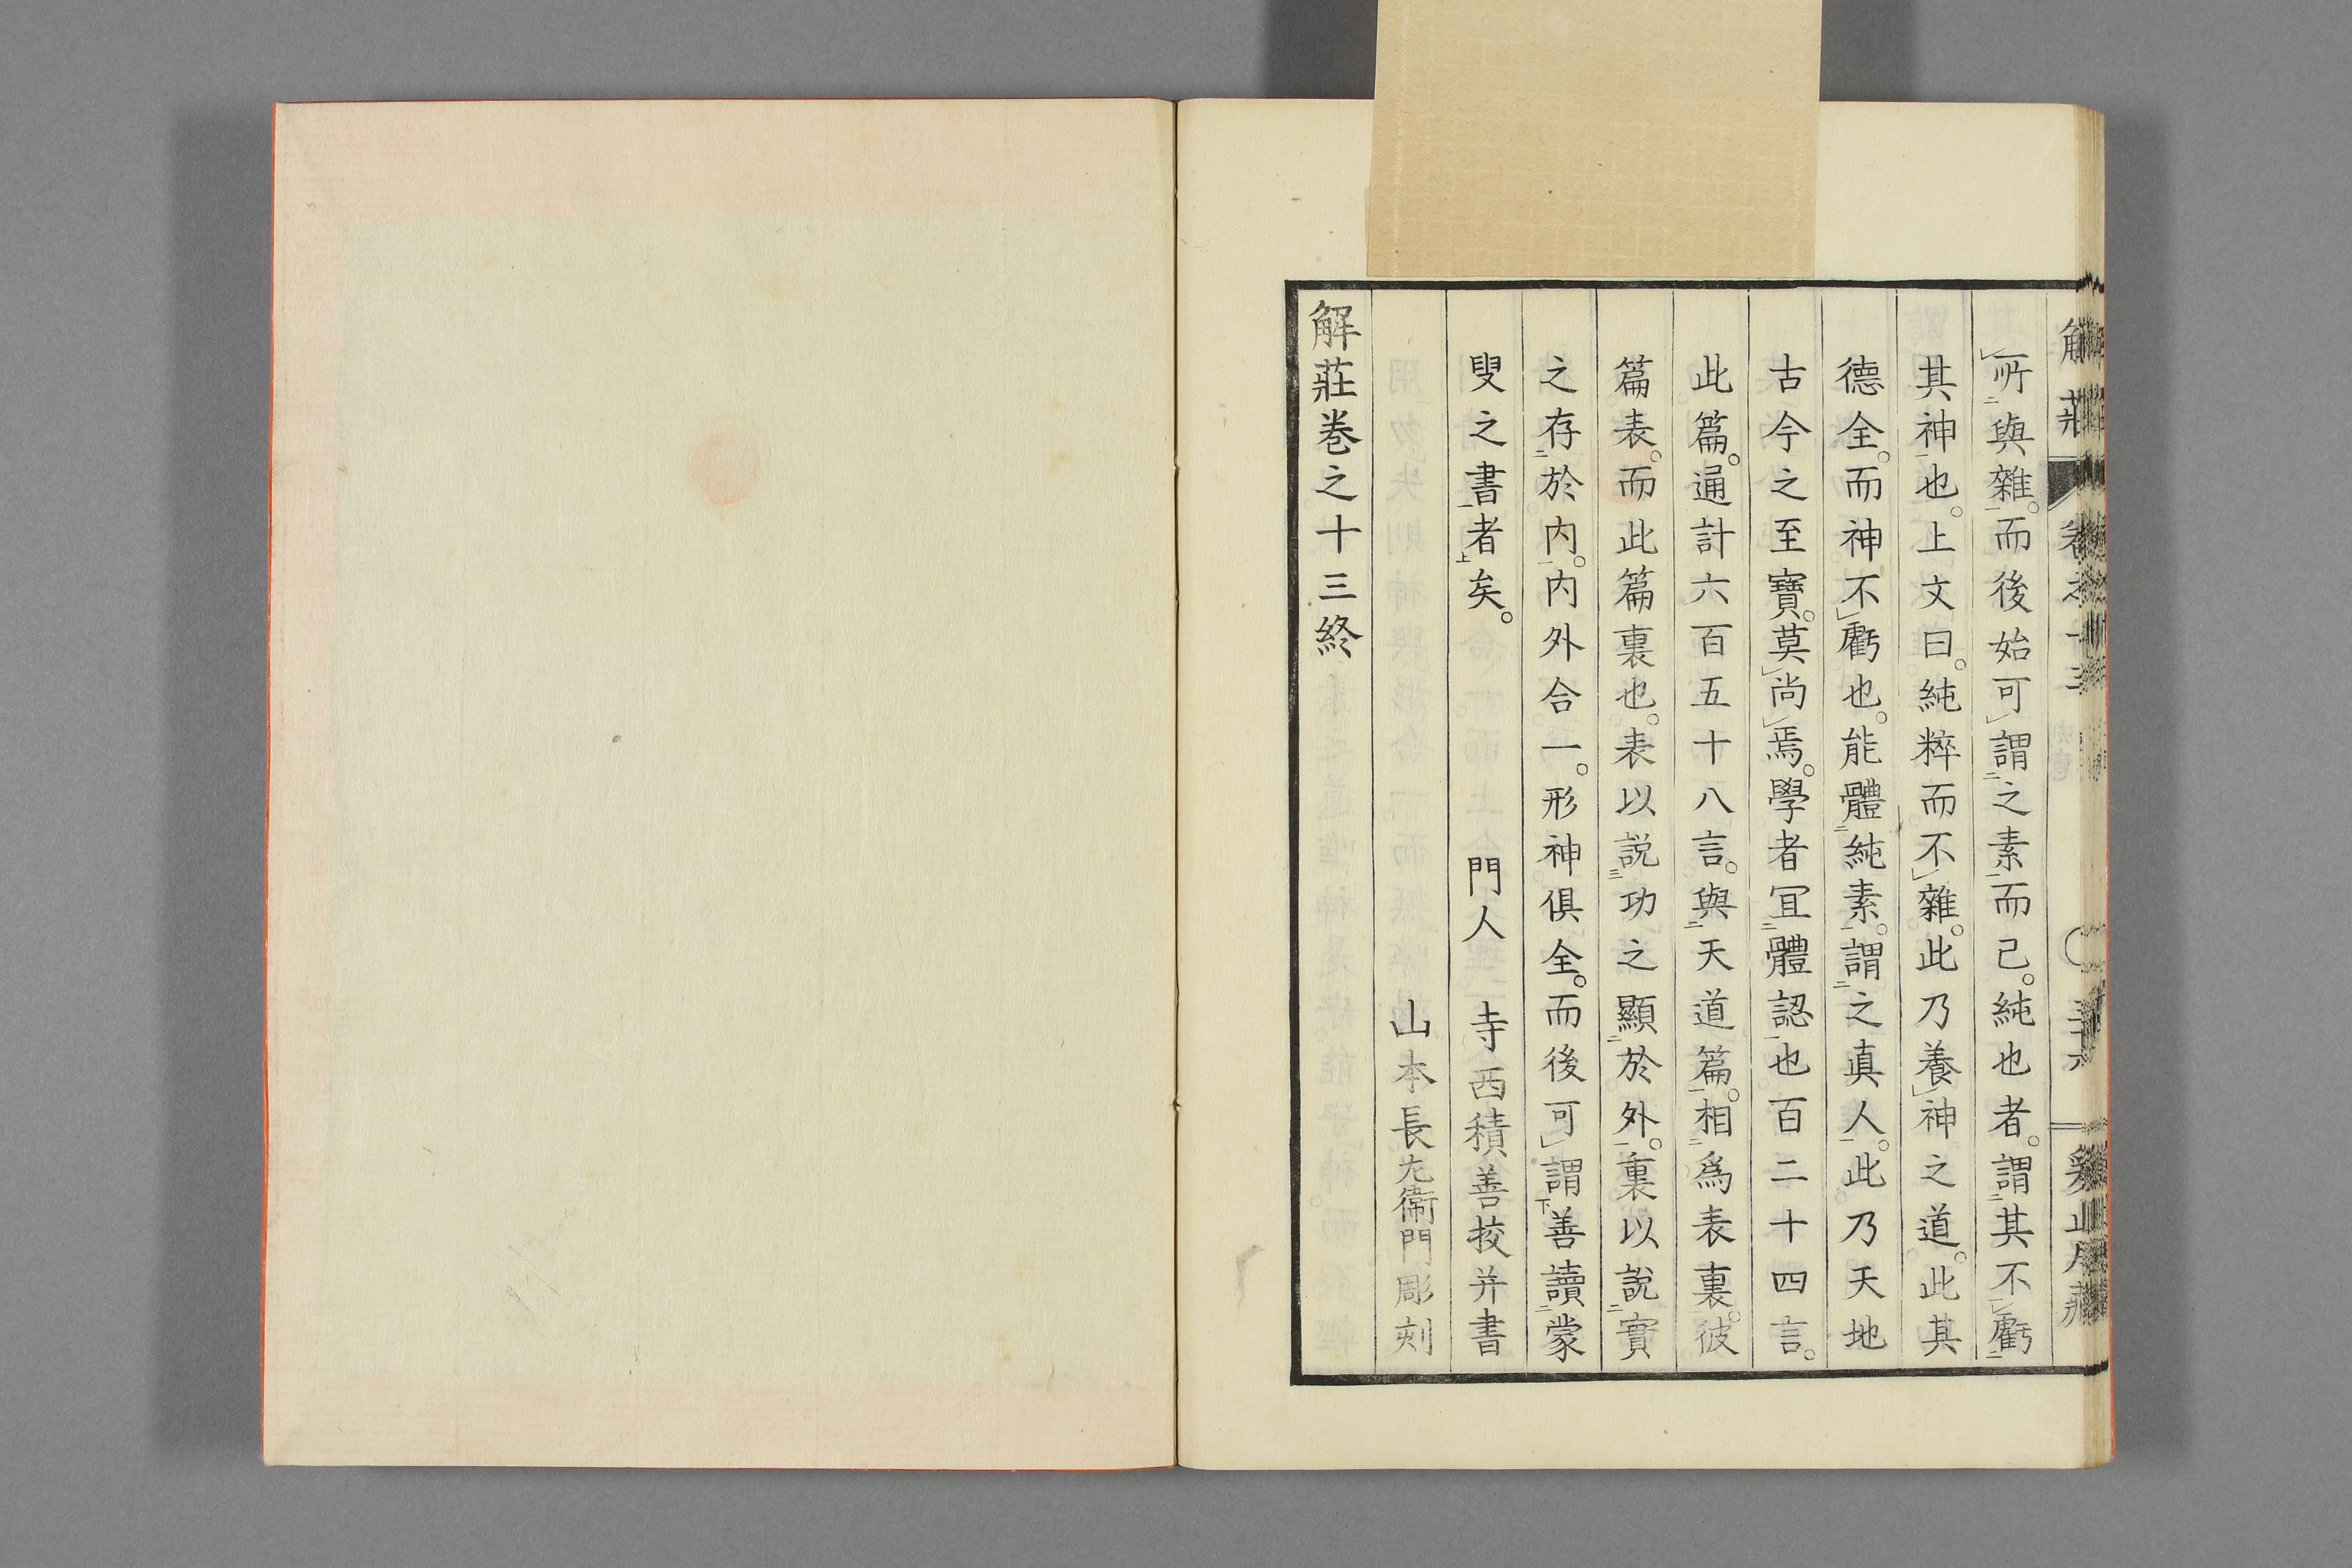 所與雜。而後始可謂之素而已。純也者。謂其不虧
其神也。上文曰。純粹而不雜。此乃養神之道。此其
德全。而神不虧也。能體純素。謂之真人。此乃天地
古今之至寶。莫尚焉。學者冝體認也百二十四言。
此篇。通計六百五十八言。與天道篇。相爲表裏。彼
篇表。而此篇裏也。表以説功之顯於外。裏以説實
之存於内。内外合一。形神俱全。而後可謂善讀蒙
叟之書者矣。 門人 寺西積善挍并書
山本長左衞門彫刻
解莊卷之十三終